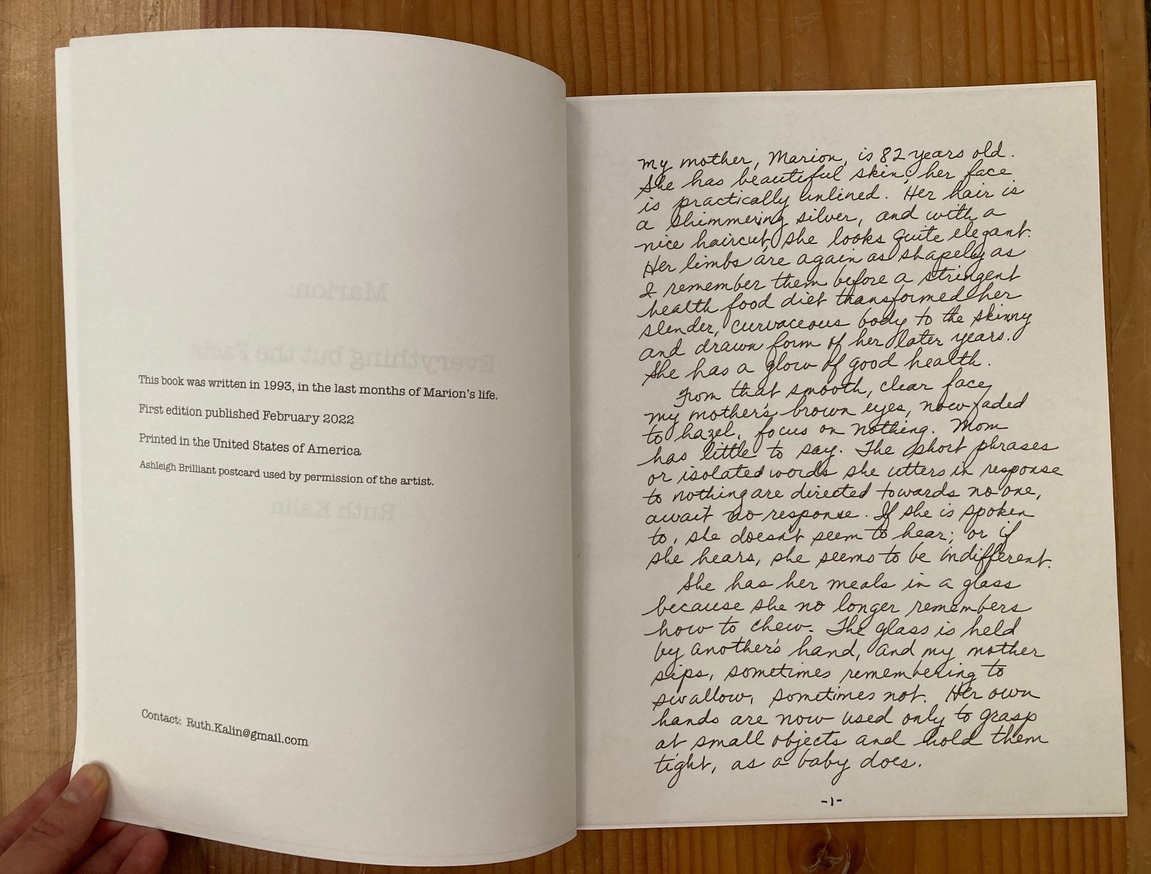 Marion:
Everything but the Facts
This book was written in 1993, in the last months of Marion's life.
First edition published February 2022
Printed in the United States of America
Ashleigh Brilliant postcard used by permission of the artist.
Ruth Kalin
Contact: Ruth.Kalin@gmail.com
my mother, Marion, is 82 years old.
She has beautiful skin, her face
is practically unlined. Her hair is
a shimmering silver, and with a
nice haircut, she looks quite elegant.
Her limbs are again as shapely as
I remember them before a stringent
health food diet transformed her
slender, curvaceous body to the skinny
and drawn form of her later years.
She has a glow of good health.
From that smooth, clear face,
my mother's brown eyes, now faded
to hazel, focus on nothing. Mom
has little to say. The short phrases
or isolated words she utters in response
to nothing are directed towards no one,
await no response. If she is spoken
to, she doesn't seem to hear; or if
she hears, she seems to be indifferent.
She has her meals in a glass
because she no longer remembers
how to chew. The glass is held
by another's hand, and my mother
sips, sometimes remembering to
swallow, sometimes not. Her own
hands are now used only to grasp
at small objects and hold them
tight, as a baby does.
-1-